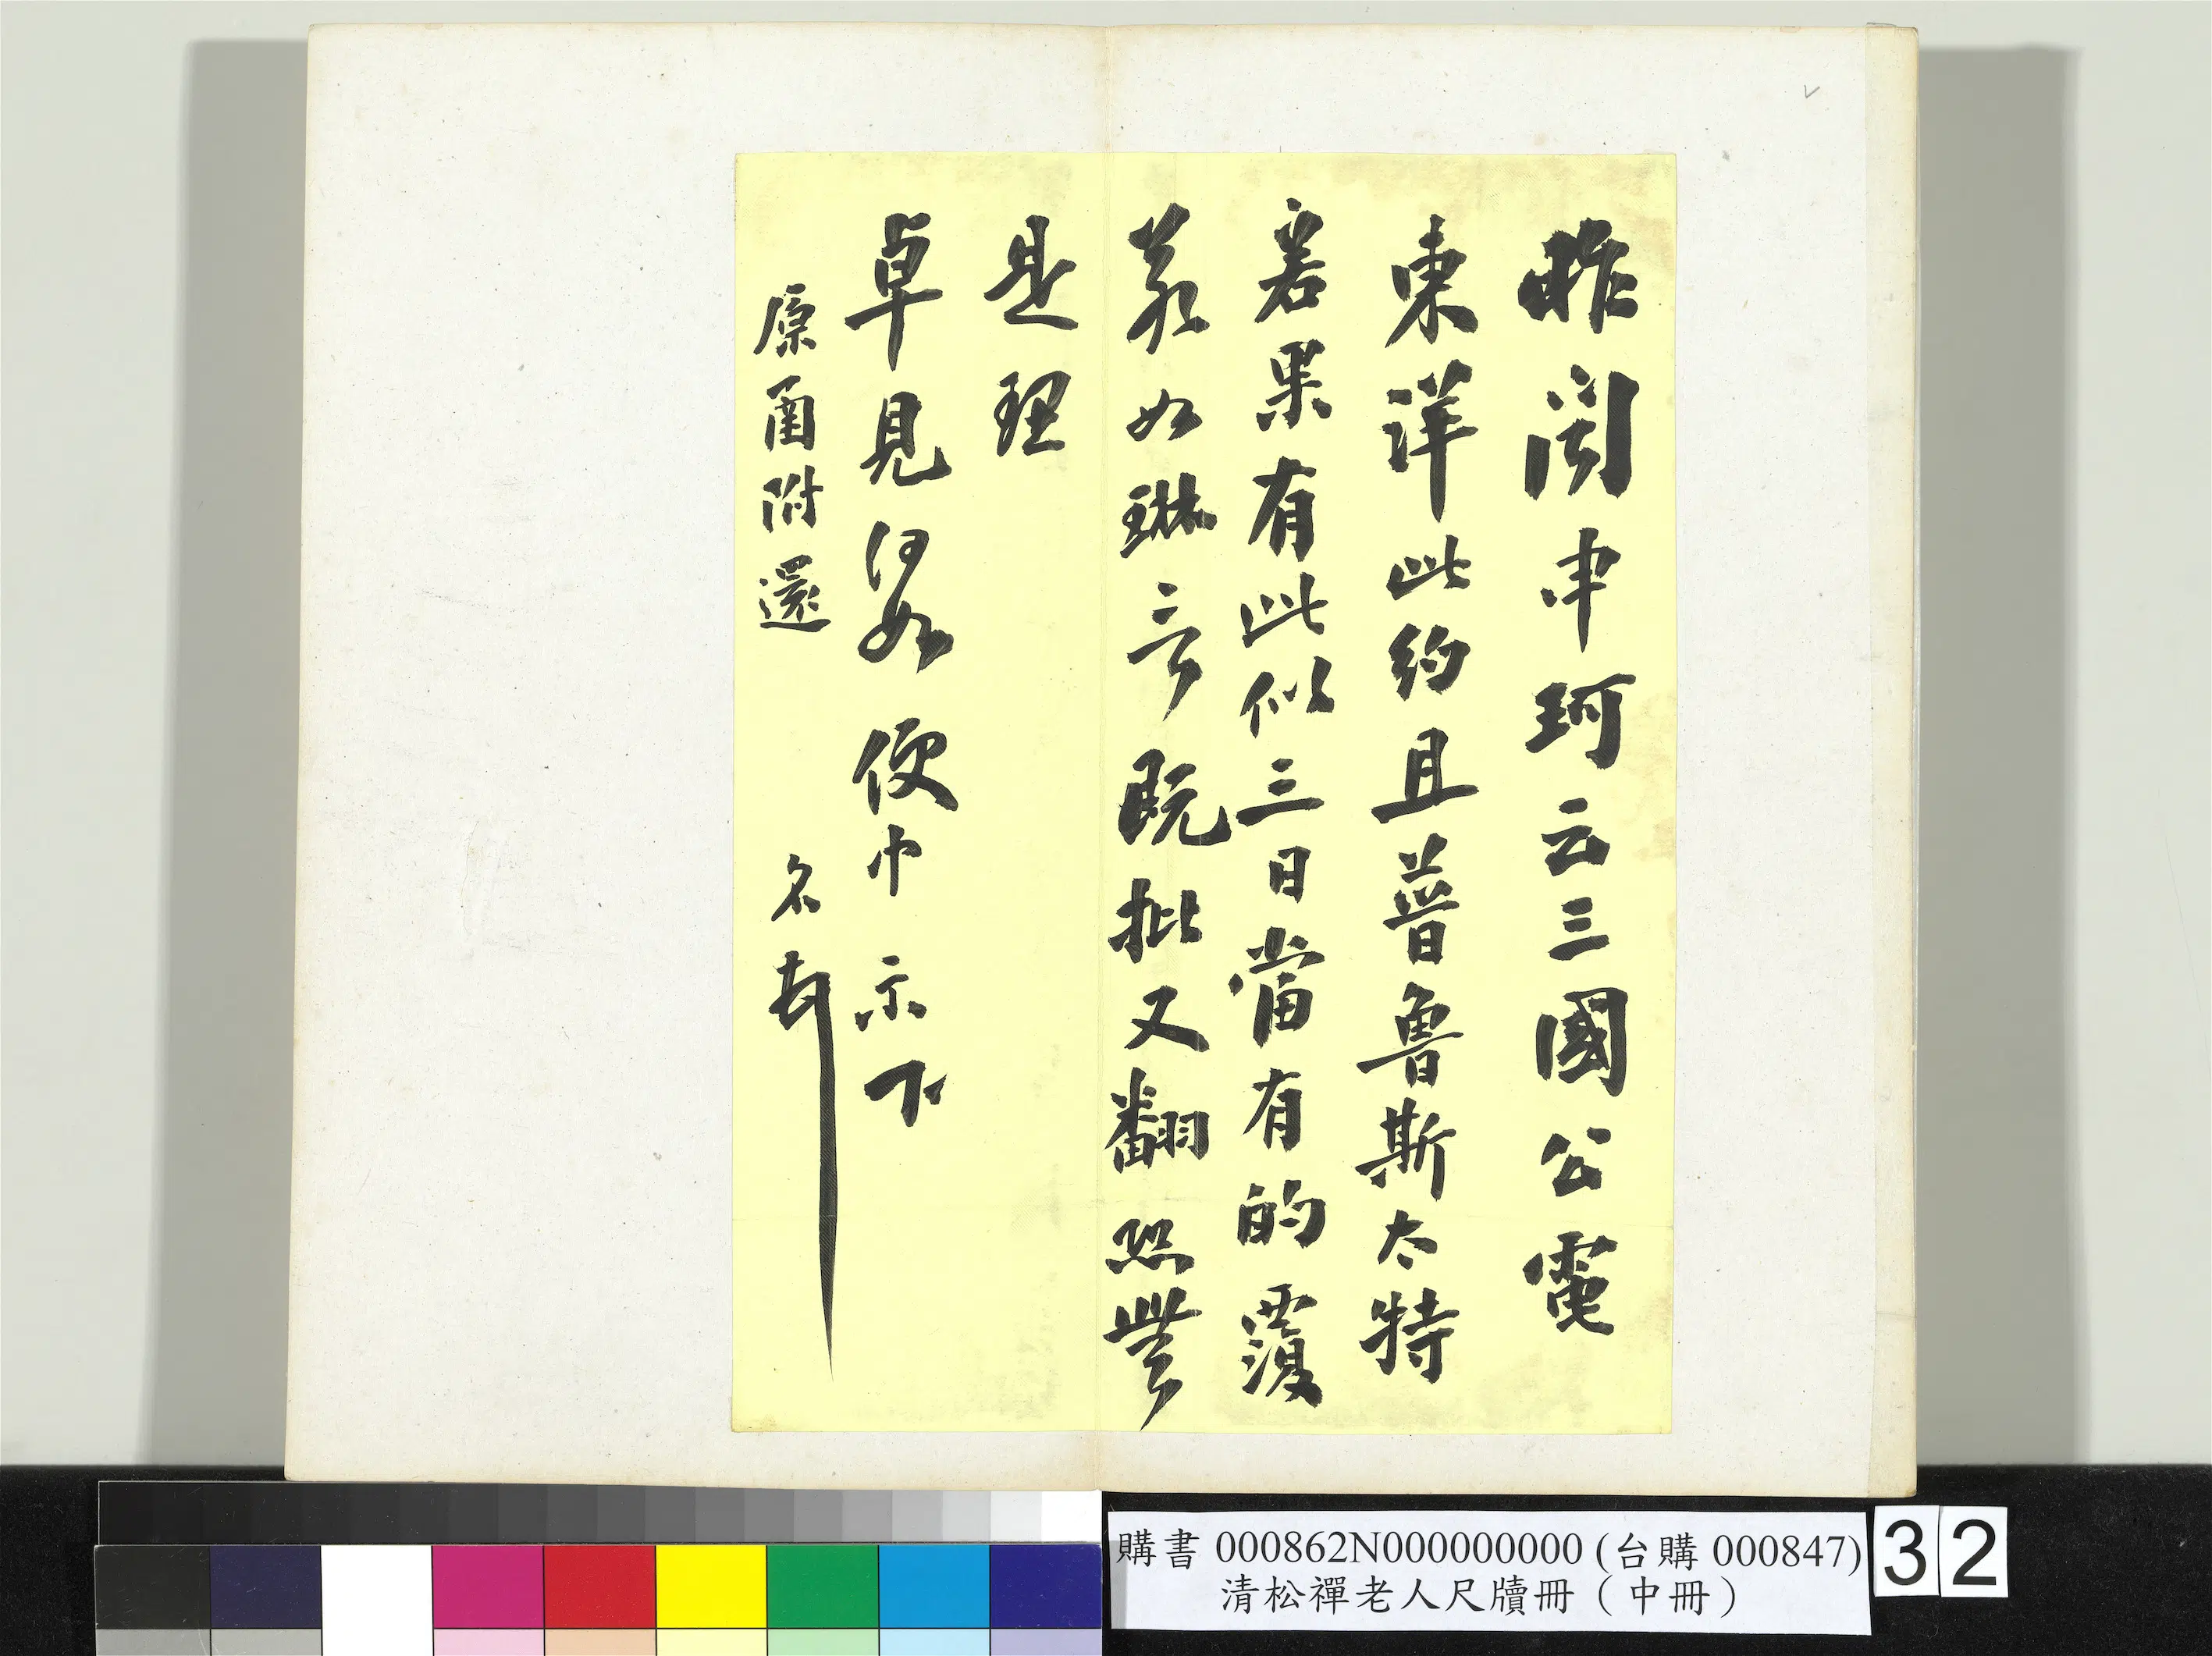 昨聞申珂云三國公電
東洋此約且普魯斯太特
若果有此似三日當有的覆
若如琳言既批又翻恐無
是理
卓見何如便中示下
原函附還 名
購書 000862N000000000 (台購 000847)
清松禪老人尺牘冊（中冊）
32